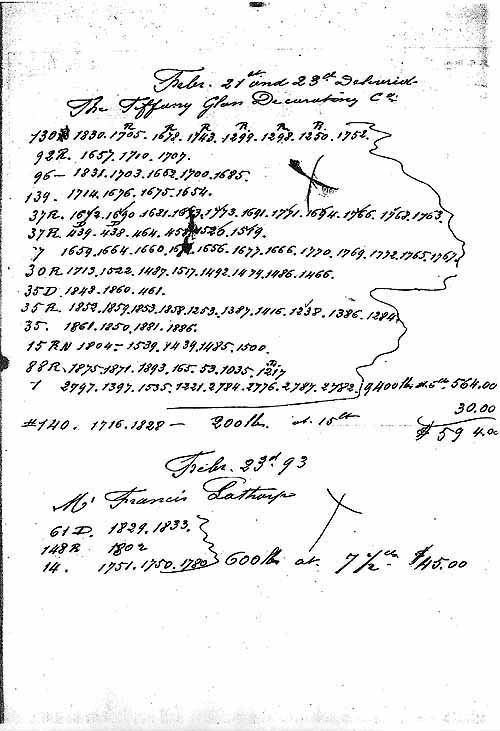 Febr. 21st and 23rd Deliverd
The Tiffany Glass Decorating Co.
130 1830. 1705. 1678. 1743. 1299. 1298. 1250. 1752.
92R. 1657. 1700. 1707.
96 - 1831. 1703. 1662. 1700. 1685.
139. 1714. 1676. 1675. 1654.
37R. 1690 1621. 1773. 1691. 1771. 1694. 1766. 1763. 1763.
37R 439. 438. 464. 1526. 1519.
7 1659. 1664. 1660. 1656. 1677. 1666. 1770. 1769. 1772. 1765. 1767.
30R 1713. 1522. 1487. 1517. 1492. 1479. 1486. 1466.
35D 1848. 1860. 461.
35R. 1852. 1859. 1853. 1858. 1253. 1387. 1416. 1238. 1386. 1284.
35. 1861. 1250. 1881. 1886.
15RN 1804 - 1539. 1439. 1485. 1500.
88R. 1875. 1871. 1893. 165. 53. 1035. 1217
1 2797. 1397. 1535. 1221. 2784. 2776. 2787. 2782. 9400 lbs at 6cts 564.00
30.00
#140. 1716. 1828 - 200 lbs. at 15cts
$594.00
Febr. 23rd 93
Mr Francis Lathrop
61D. 1829. 1833.
148R 1802
14. 1751. 1750. 1780 600 lbs at 7 1/2 cts $45.00